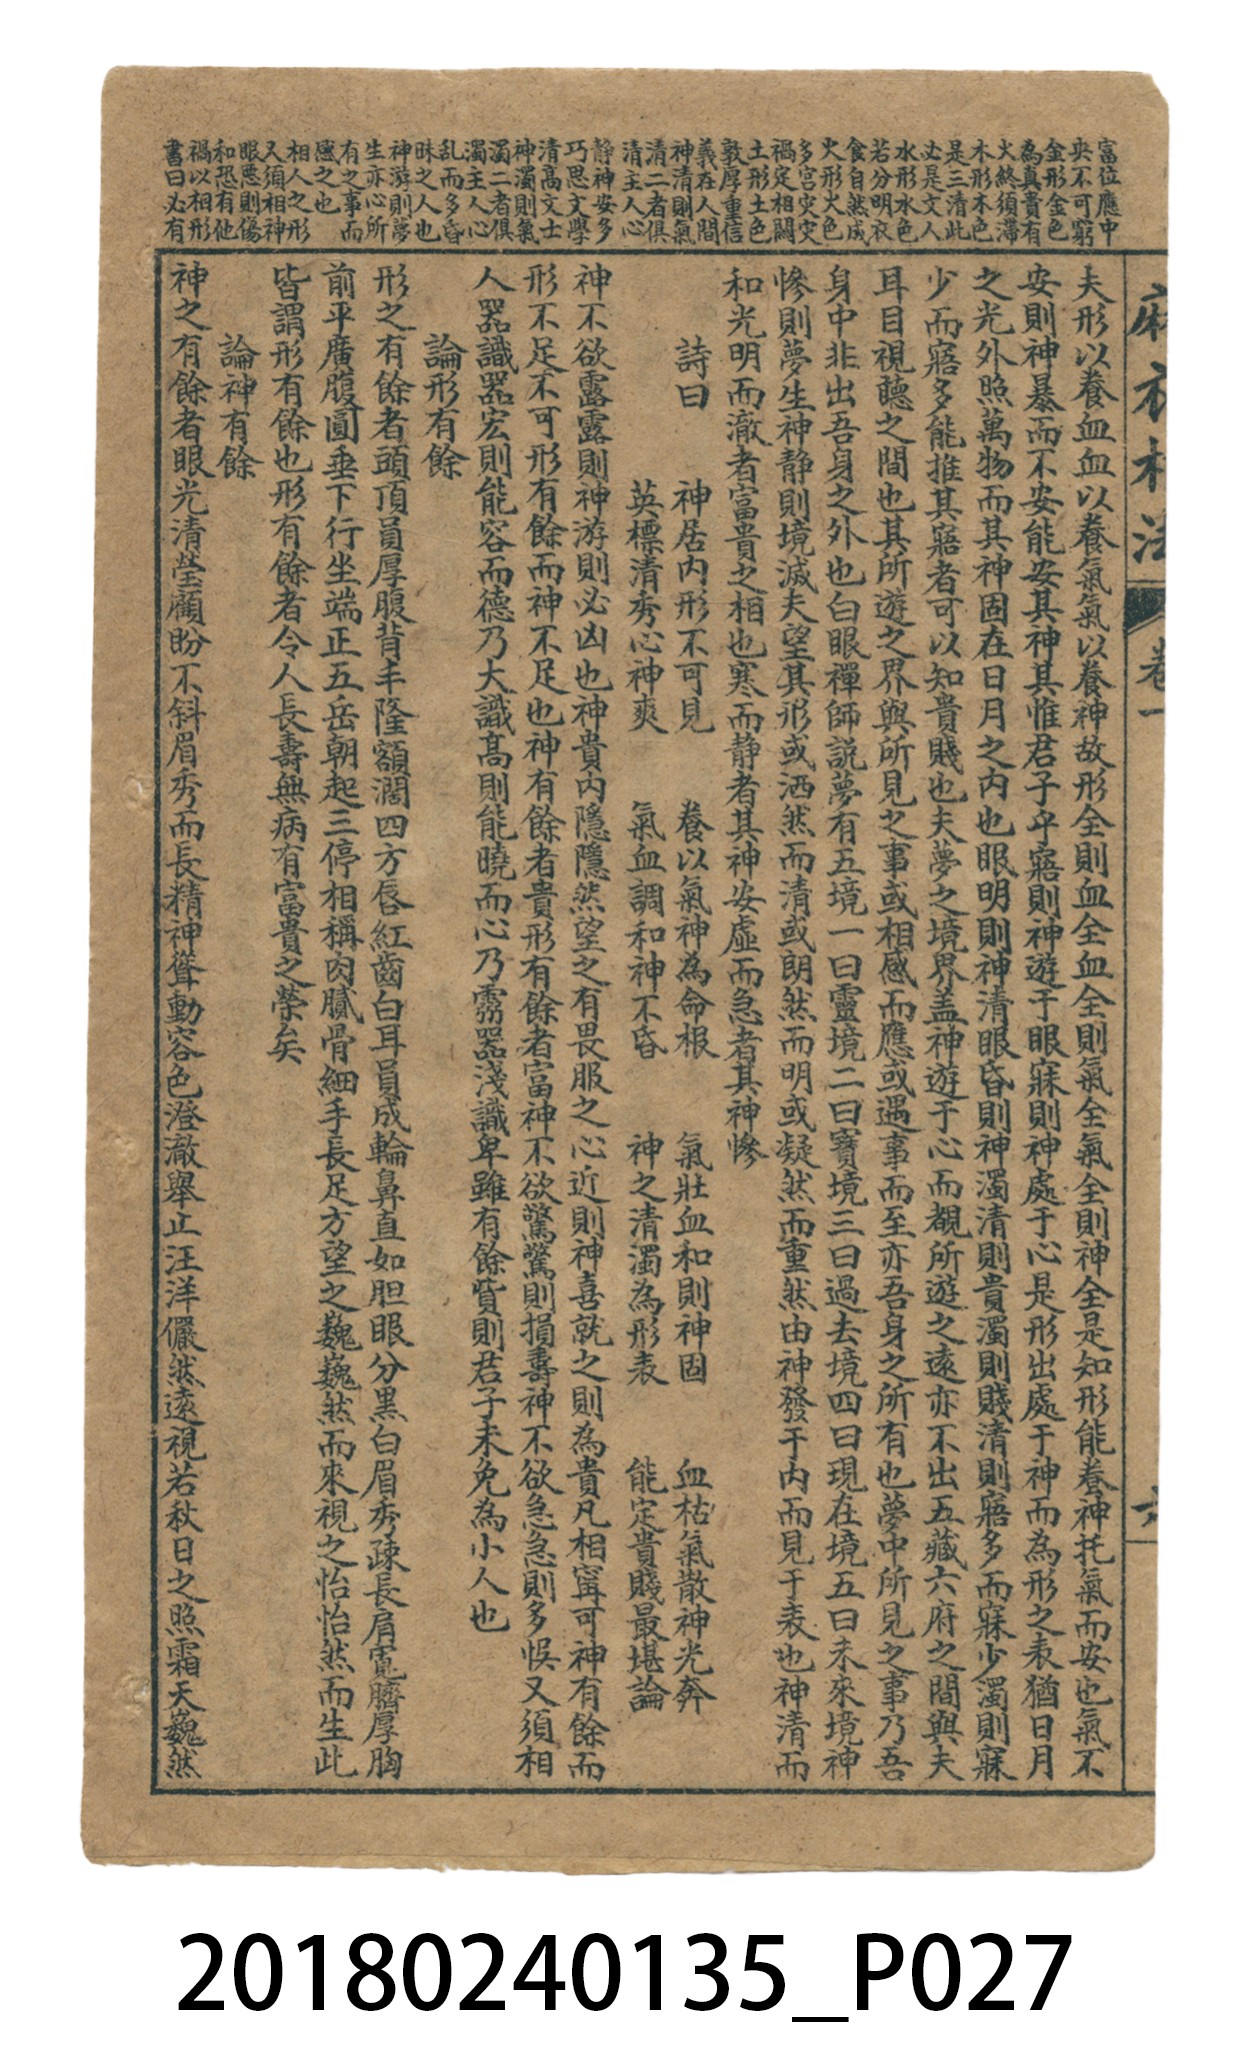 富位應中
央不可窮
金形金色
為真貴有
火終須滯
木形木色
是三清此
必是文人
水形水色
若分明衣
食自然成
火形火色
多宫灾灾
禍定相闗
土形土色
敦厚重信
義在人間
神清則氣
清二者俱
清主人心
静神安多
巧思文學
清高文士
神濁則氣
濁二者俱
濁主人心
乱而多昏
昧之人也
神游則夢
生亦心所
有之事而
感之也
相人之形
又須相神
眼悪則傷
和恐有他
禍以相形
書曰必有
麻衣相法
卷一
夫形以養血血以養氣氣以養神故形全則血全血全則氣全氣全則神全是知形能養神托氣而安也氣不
安則神暴而不安能安其神其惟君子乎寤則神遊于眼寐則神處于心是形出處于神而為形之表猶日月
之光外照萬物而其神固在日月之内也眼明則神清眼昏則神濁清則貴濁則賤清則寤多而寐少濁則寐
少而寤多能推其寤者可以知貴賤也夫夢之境界盖神遊于心而覩所遊之遠亦不出五藏六府之間與夫
耳目視聽之間也其所遊之界與所見之事或相感而應或遇事而至亦吾身之所有也夢中所見之事乃吾
身中非出吾身之外也白眼禪師説夢有五境一曰靈境二曰寶境三曰過去境四曰現在境五曰未來境神
慘則夢生神静則境滅夫望其形或洒然而清或朗然而明或凝然而重然由神發于内而見于表也神清而
和光明而澈者富貴之相也寒而静者其神安虚而急者其神慘
詩曰 神居内形不可見 養以氣神為命根 氣壯血和則神固 血枯氣散神光奔
英標清秀心神爽 氣血調和神不昏 神之清濁為形表 能定貴賤最堪論
神不欲露露則神游則必凶也神貴内隱隱然望之有畏服之心近則神喜就之則為貴凡相寗可神有餘而
形不足不可形有餘而神不足也神有餘者貴形有餘者富神不欲驚驚則損壽神不欲急急則多悞又須相
人器識器宏則能容而德乃大識高則能曉而心乃靈器淺識卑雖有餘貲則君子未免為小人也
論形有餘
形之有餘者頭頂員厚腹背丰隆額濶四方唇紅齒白耳員成輪鼻直如胆眼分黒白眉秀疎長肩寬臍厚胸
前平廣腹圓垂下行坐端正五岳朝起三停相稱肉膩骨細手長足方望之巍巍然而來視之怡怡然而生此
皆謂形有餘也形有餘者令人長壽無病有富貴之榮矣
論神有餘
神之有餘者眼光清瑩顧盼不斜眉秀而長精神聳動容色澄澈舉止汪洋儼然遠視若秋日之照霜天巍然
20180240135_P027